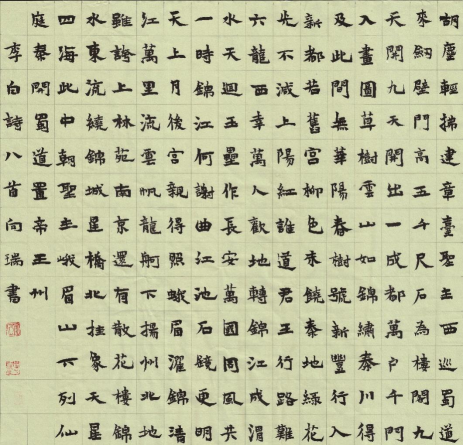 胡塵輕拂建章臺聖主西巡蜀道
來劍壁門高五千尺石為樓閣九
天開九天開出一成都萬戶千門
入畫圖草樹雲山如錦繡秦川得
及此間無華陽春樹號新豐行入
新都若舊宮柳色未饒秦地綠花
光不減上陽紅誰道君王行路難
六龍西幸萬人歡地轉錦江成渭
水天迴玉壘作長安萬國同風共
一時錦江何謝曲江池石鏡更明
天上月後宮親得照蛾眉濯錦清
江萬里流雲帆龍舸下揚州北地
雖誇上林苑南京還有散花樓錦
水東流繞錦城星橋北挂象天星
四海此中朝聖主峨眉山下列仙
庭秦開蜀道置帝王州
李白詩八首向瑞書